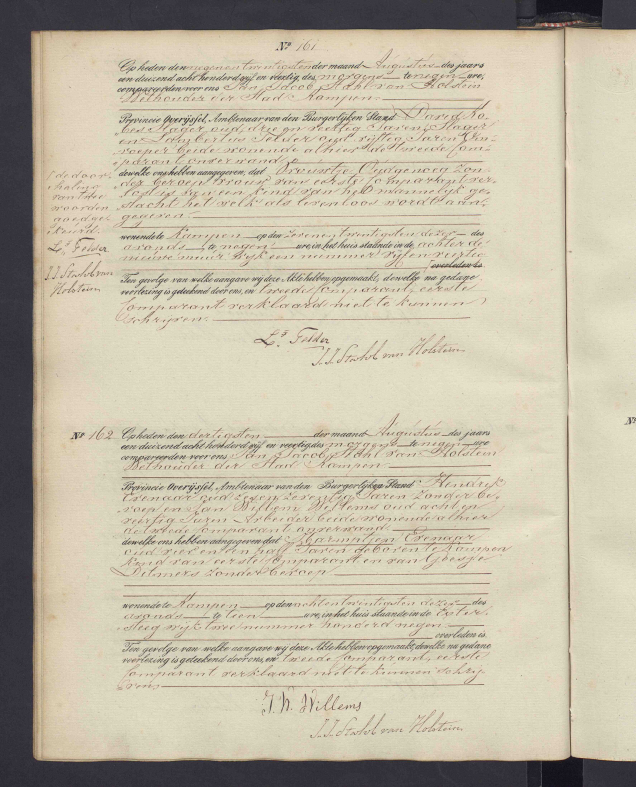 Nº 161
Op heden den negenentwintigsten der maand Augustus des jaars
een duizend acht honderd vijf en veertig, des morgens te negen ure,
compareerden voor ons Jan Jacob Stahl van Holstein
Wethouder der Stad Kampen
Provincie Overijssel, Ambtenaar van den Burgerlijken Stand David Ko-
oud drie en veertig Jaren, Slager
en Lambertus Felder oud vijftig Jaren Om-
roeper beide wonende alhier de tweede Com-
parant onverwand
dewelke ons hebben aangegeven, dat Vrouwtje Zon-
der beroep vrouw van eerste Comparant ver-
lost is van een kind van het mannelijk ge-
slacht het welk als levenloos wordt aan-
gegeven
wonende te Kampen op den zevenentwintigsten dezer des
avonds te negen ure, in het huis staande in de achter de
nieuwe muur Wijk een nummer vijf en veertig
overleden is.
Ten gevolge van welke aangave wij deze Akte hebben opgemaakt, dewelke na gedane
voorlezing is geteekend door ons, en tweede Comparant, eerste
Comparant verklaard niet te kunnen
schrijven.
Ls Felder
J. J. Stahl van Holstein
de door-
haling
van twee
woorden
goedge-
keurd.
Ls Felder
J. J. Stahl van
Holstein
Nº 162
Op heden den dertigsten der maand Augustus des jaars
een duizend acht honderd vijf en veertig des morgens te negen ure
compareerden voor ons Jan Jacob Stahl van Holstein
Wethouder der Stad Kampen
Provincie Overijssel, Ambtenaar van den Burgerlijken Stand Hendrik
Exenaar oud zeven zestig Jaren Zonder be-
roep en Jan Willem Willems oud acht en
veertig Jaren Arbeider beide wonende alhier
de tweede Comparant onverwand
dewelke ons hebben aangegeven dat Harmantjen Exenaar
oud en een half Jaren geboren te Kampen
kind van eerste Comparant en van
Ditmers Zonder beroep
wonende te Kampen op den achtentwintigsten dezer des
avonds te tien ure, in het huis staande in de
Steeg wijk twee nummer honderd negen
overleden is.
Ten gevolge van welke aangave wij deze Akte hebben opgemaakt, dewelke na gedane
voorlezing is geteekend door ons, en tweede Comparant, eerste
Comparant verklaard niet te kunnen schrij-
ven.
J. W. Willems
J. J. Stahl van Holstein
Nº